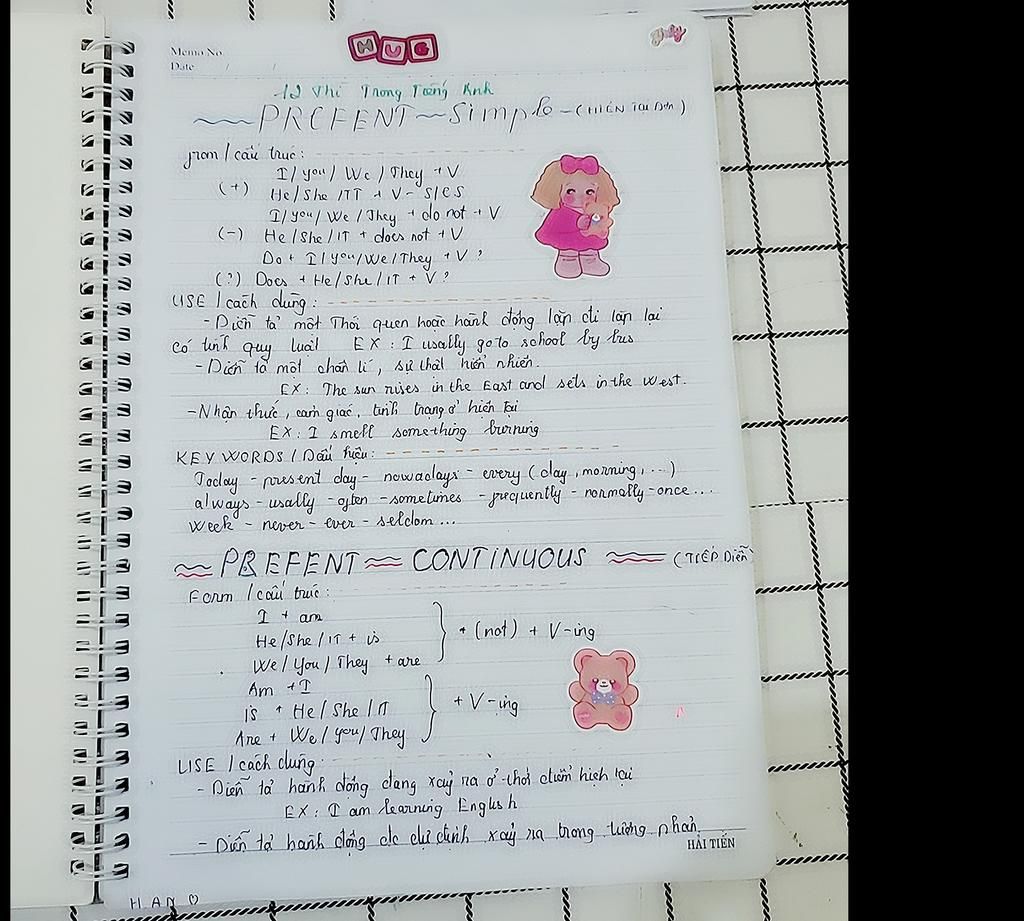 HUG
Memo No.
Date / /
12 Thì Trong Tiếng Anh
PREFENT Simple - (HIỆN TẠI ĐƠN)
From / cấu trúc:
I / you / We / They + V
(+) He / She / IT + V - S/ES
I / you / We / They + do not + V
(-) He / She / IT + does not + V
Do + I / you / We / They + V ?
(?) Does + He / She / IT + V ?
USE / cách dùng:
- Diễn tả một Thói quen hoặc hành động lặp đi lặp lại
có tính quy luật EX: I usally go to school by bus
- Diễn tả một chân lí, sự thật hiển nhiên.
EX: The sun rises in the East and sets in the West.
- Nhận thức, cảm giác, tình trạng ở hiện tại
EX: I smell something burning
KEY WORDS / Dấu hiệu:
Today - present day - nowadays - every (day, morning, ...)
always - usally - often - sometimes - frequently - normally - once ...
week - never - ever - seldom ...
PREFENT CONTINUOUS (TIẾP Diễn)
Form / cấu trúc:
I + am
He / She / IT + is + (not) + V-ing
We / You / They + are
Am + I
is + He / She / IT + V-ing
Are + We / you / They
USE / cách dùng:
- Diễn tả hành động đang xảy ra ở thời điểm hiện tại
EX: I am learning English
- Diễn tả hành động đc dự định xảy ra trong tương
HẢI TIẾN
HAN ♡